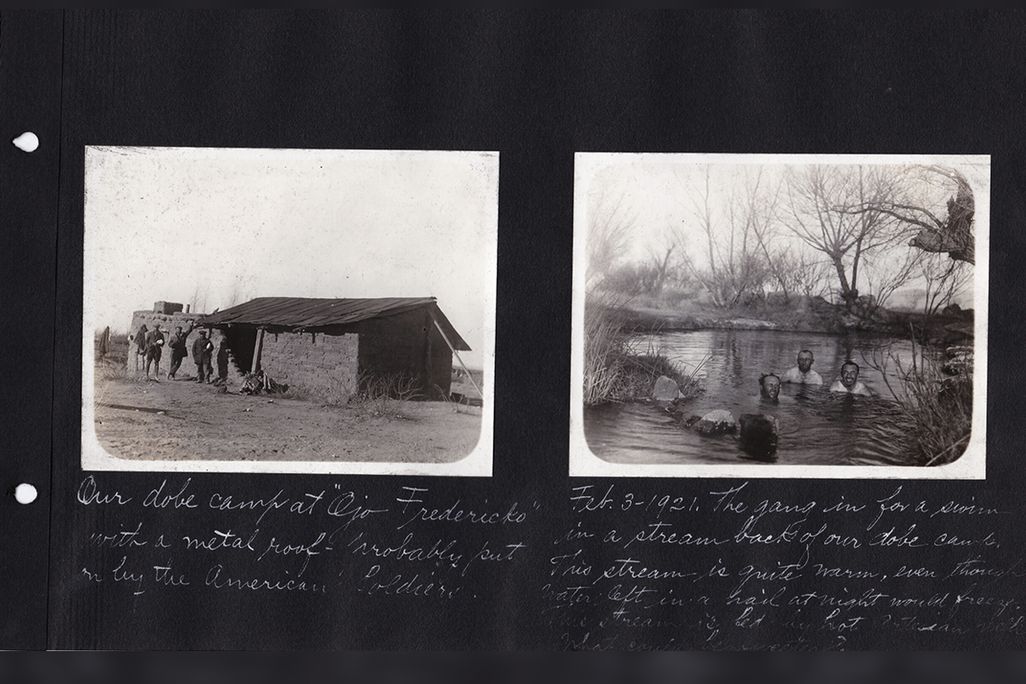 Our dobe camp at "Ojo Fredericko"
with a metal roof - Probably put
on by the American Soldiers.
Feb. 3-1921. The gang in for a swim
in a stream back of our dobe camp.
This stream is quite warm, even though
water left in a pail at night would freeze.
This stream is fed by hot Artesian wells
What could be sweeter?